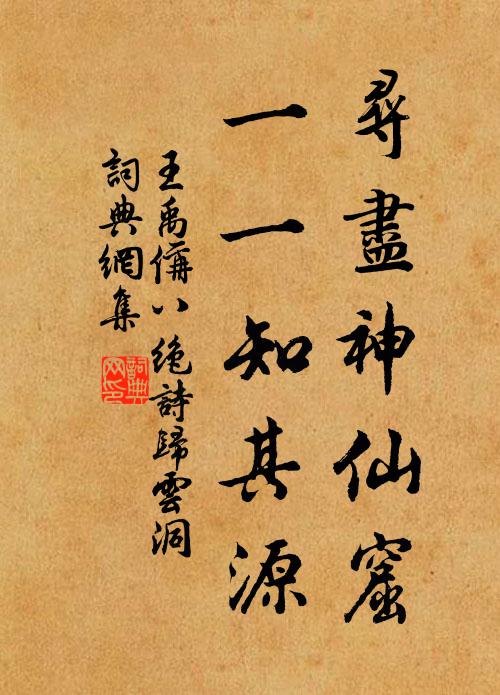 尋盡神仙窟
一一知其源
王禹偁八絶詩歸雲洞
詞典網集
詞典
网印